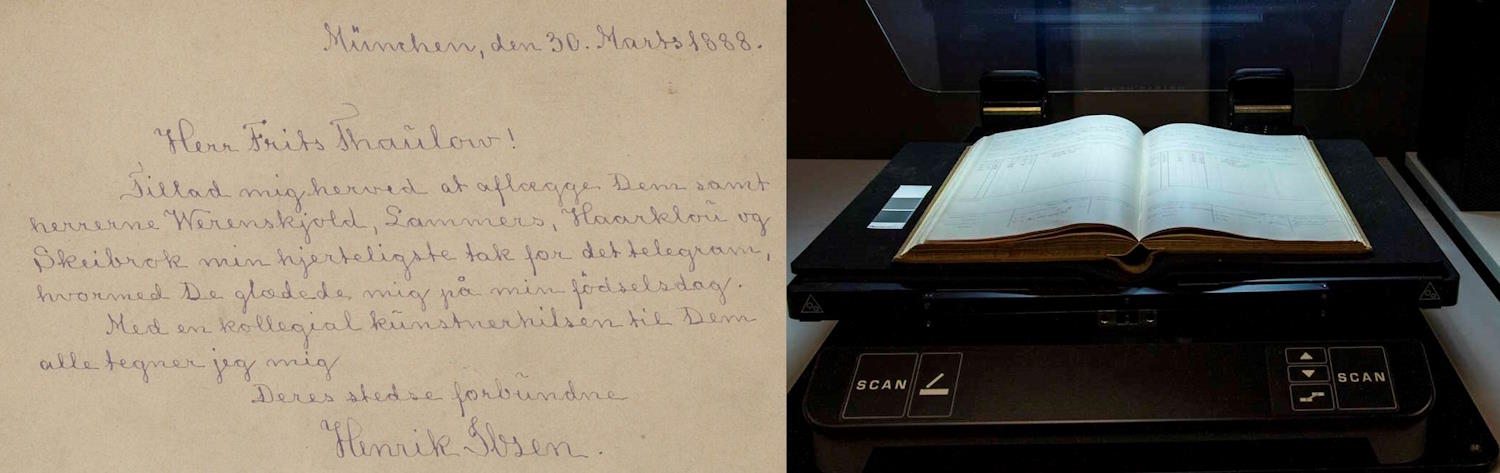 München, den 30. Marts 1888.
Herr Frits Thaulow!
Tillad mig herved at aflægge Dem samt
herrerne Werenskjold, Lammers, Haarklou og
Skeibrok min hjerteligste tak for det telegram,
hvormed De glædede mig på min födselsdag.
Med en kollegial kunstnerhilsen til Dem
alle tegner jeg mig
Deres stedse forbundne
Henrik Ibsen.
SCAN
SCAN